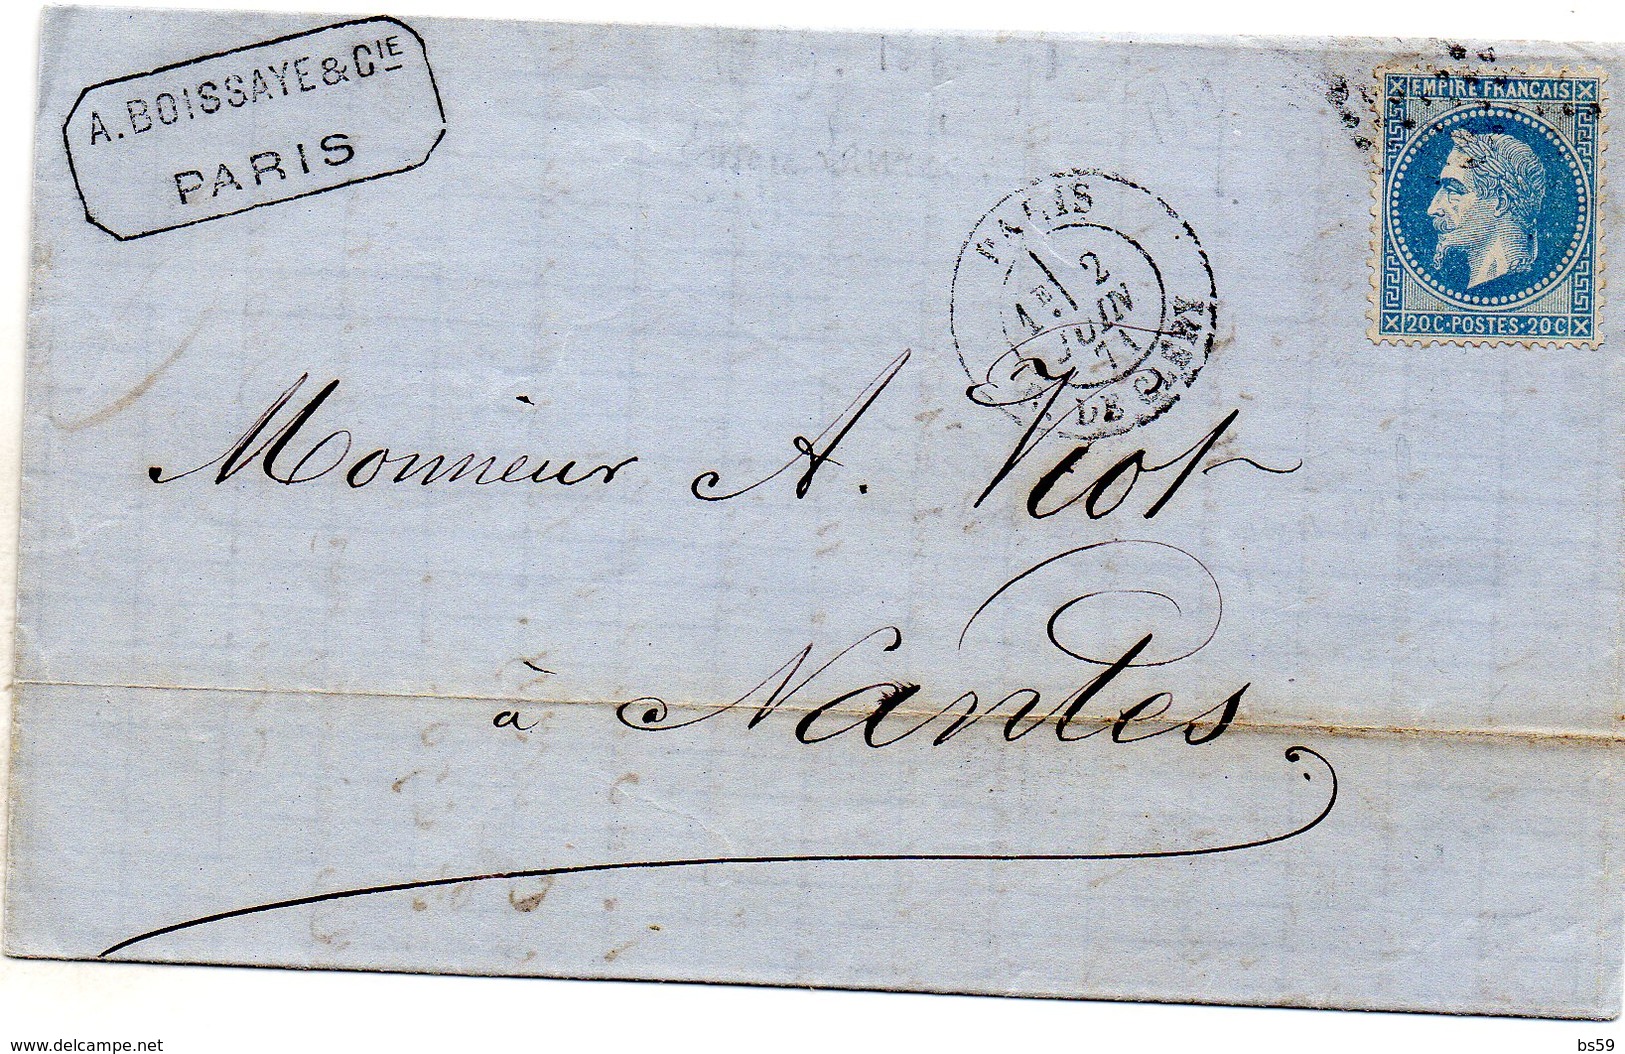 A. BOISSAYE & CIE
PARIS
EMPIRE FRANCAIS
20 C · POSTES · 20 C
PARIS
2
1E
JUIN
71
R. DE CLERY
Monsieur A. Viot
à Nantes
delcampe.net
bs59